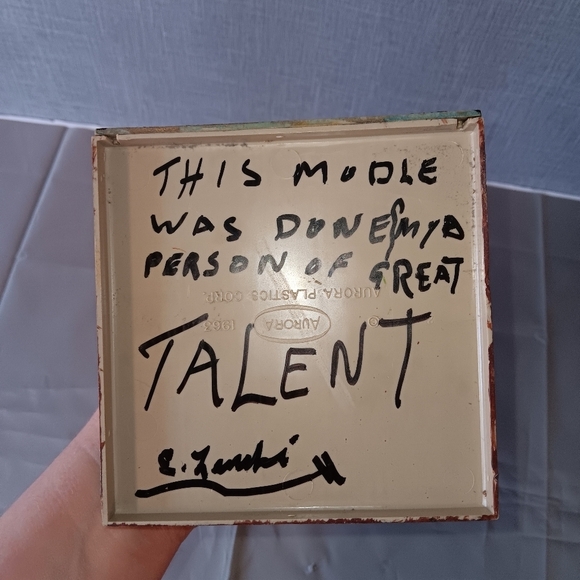 THIS MODLE
WAS DONE BY A
PERSON OF GREAT
AURORA PLASTICS CORP.
AURORA
TALENT